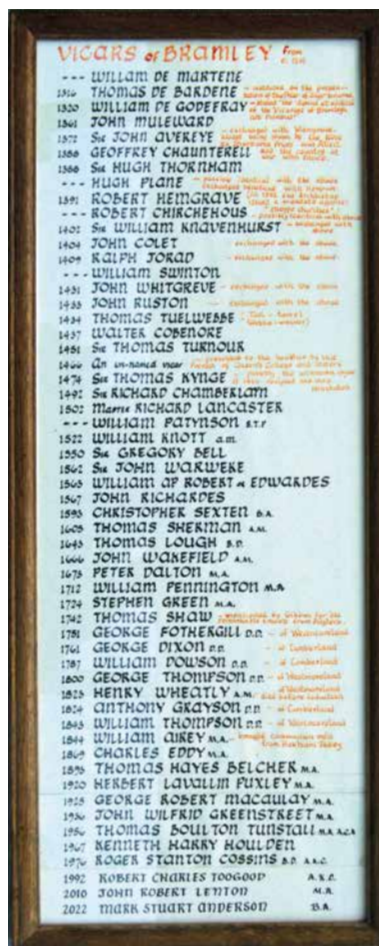 VICARS of BRAMLEY From
--- WILLIAM DE MARTENE
1316 THOMAS DE BARDENE
1320 WILLIAM DE GODEFRAY
1361 JOHN MULEWARD
1372 Sir JOHN AVEREYE - exchanged with
1388 GEOFFREY CHAUNTERELL
1388 Sir HUGH THORNHAM
--- HUGH PLANE
1391 ROBERT HEMGRAVE
--- ROBERT CHIRCHEHOUS
1402 Sir WILLIAM KNAVENHURST - exchanged with above
1404 JOHN COLET - exchanged with the above
1409 RALPH JORAD - exchanged with the above
--- WILLIAM SWINTON
1431 JOHN WHITGREVE - exchanged with the above
1433 JOHN RUSTON - exchanged with the above
1434 THOMAS TUELWEBBE
1437 WALTER COBENORE
1451 Sir THOMAS TURNOUR
1466 An un-named vicar
1474 Sir THOMAS KYNGE
1492 Sir RICHARD CHAMBERLAIN
1502 Master RICHARD LANCASTER
--- WILLIAM PATYNSON S.T.P
1522 WILLIAM KNOTT A.M.
1550 Sir GREGORY BELL
1562 Sir JOHN WARWEKE
1563 WILLIAM AP ROBERT or EDWARDES
1567 JOHN RICHARDES
1593 CHRISTOPHER SEXTEN B.A.
1605 THOMAS SHERMAN A.M.
1645 THOMAS LOUGH B.D.
1666 JOHN WAKEFIELD A.M.
1673 PETER DALTON M.A.
1712 WILLIAM PENNINGTON M.A
1724 STEPHEN GREEN M.A.
1742 THOMAS SHAW
1751 GEORGE FOTHERGILL D.D. - of Westmorland
1761 GEORGE DIXON D.D. - of Cumberland
1787 WILLIAM DOWSON D.D. - of Cumberland
1800 GEORGE THOMPSON D.D. - of Westmorland
1823 HENRY WHEATLY A.M. - of Westmorland died before induction
1824 ANTHONY GRAYSON D.D. - of Cumberland
1843 WILLIAM THOMPSON D.D. - of Westmorland
1844 WILLIAM AIREY M.A.
1869 CHARLES EDDY M.A.
1895 THOMAS HAYES BELCHER M.A.
1920 HERBERT LAVALLIN PUXLEY M.A.
1925 GEORGE ROBERT MACAULAY M.A.
1936 JOHN WILFRID GREENSTREET M.A.
1956 THOMAS BOULTON TUNSTALL M.A.
1967 KENNETH HARRY HOULDEN
1976 ROGER STANTON COSSINS B.D. A.K.C.
1992 ROBERT CHARLES TOOGOOD A.K.C.
2010 JOHN ROBERT LENTON M.A.
2022 MARK STUART ANDERSON B.A.